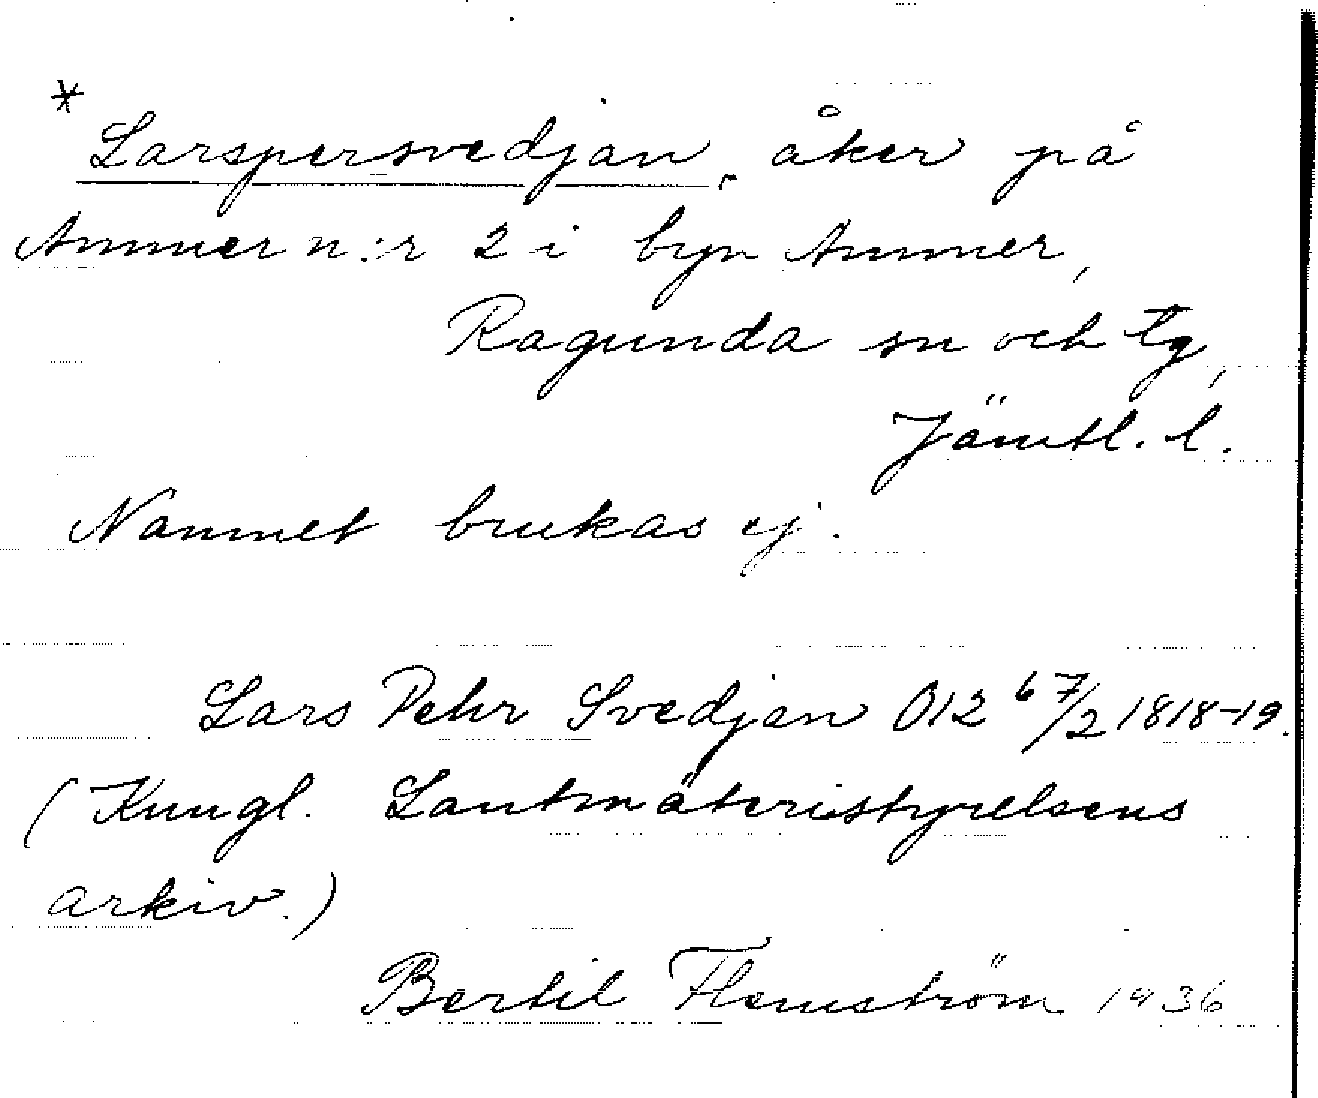 *
Larspersvedjan, åker på
Ammer n:r 2 i byn Ammer,
Ragunda sn och tg,
Jämtl. l.
Namnet brukas ej.
Lars Pehr Svedjan O12 67/2 1818-19.
(Kungl. Lantmäteristyrelsens
arkiv.)
Bertil Flemström 1936